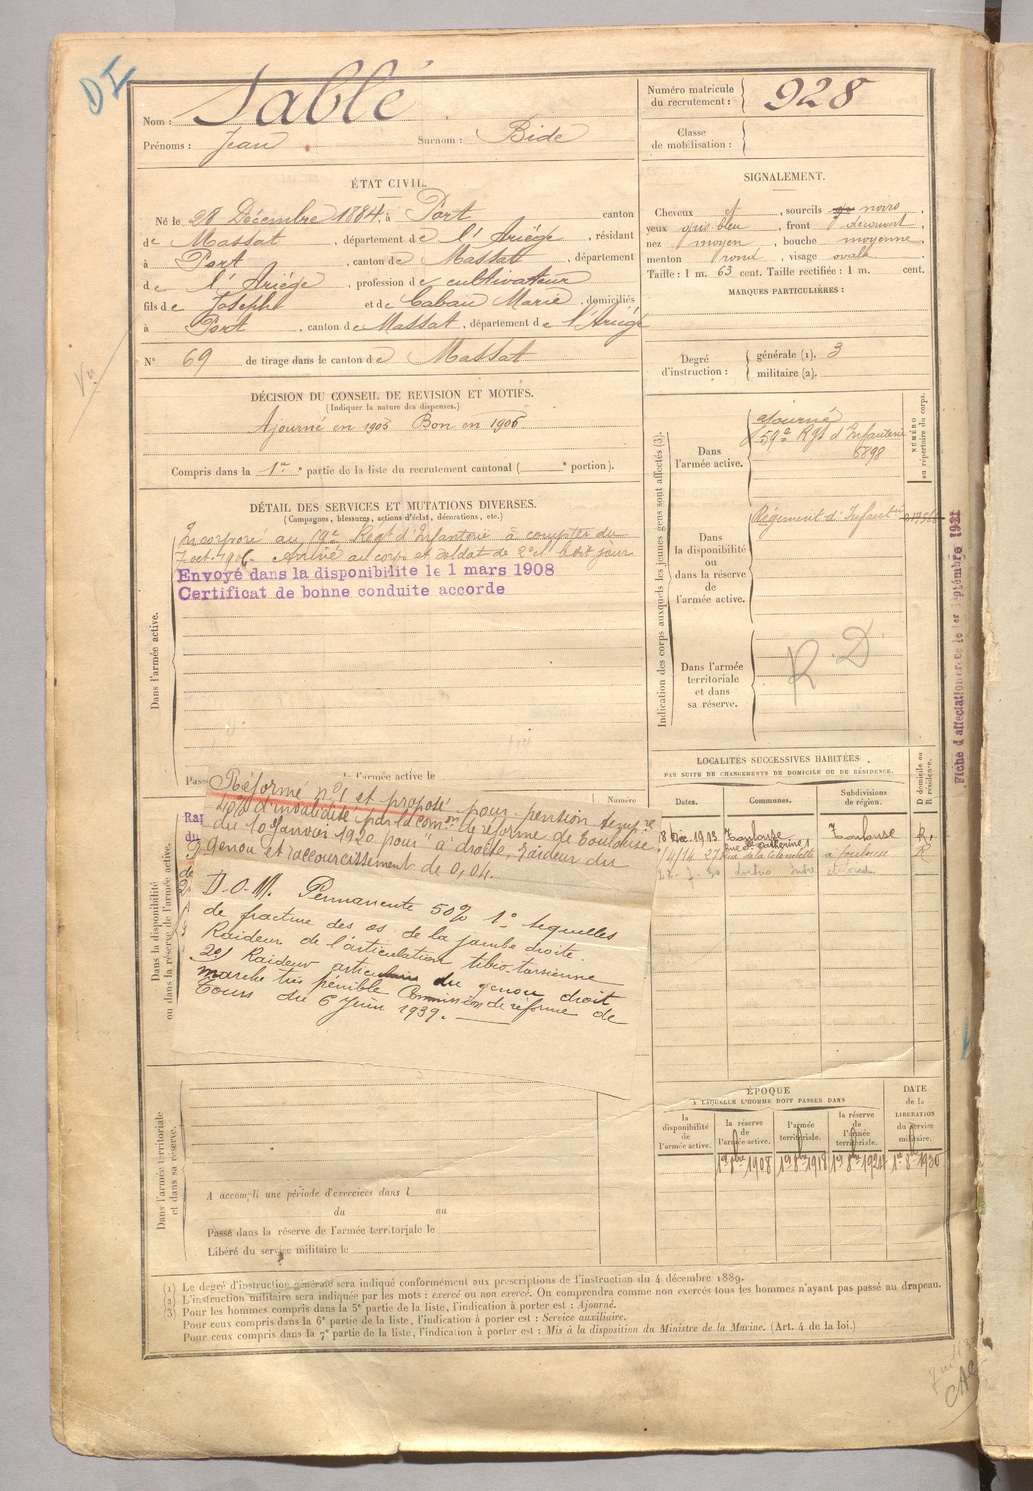 DI
Nom : Sablé
Prénoms : Jean Surnom : Bide
Numéro matricule du recrutement : 928
Classe de mobilisation :
ÉTAT CIVIL.
Né le 28 Décembre 1884, à Port canton
de Massat, département de l'Ariège, résidant
à Port, canton de Massat, département
de l'Ariège, profession de cultivateur
fils de Joseph et de Caban Marie, domiciliés
à Port, canton de Massat, département de l'Ariège
N° 69 de tirage dans le canton de Massat
SIGNALEMENT.
Cheveux et, sourcils noirs,
yeux gris bleu, front découvert,
nez moyen, bouche moyenne,
menton rond, visage ovale
Taille : 1 m. 63 cent. Taille rectifiée : 1 m. cent.
MARQUES PARTICULIÈRES :
Degré d'instruction : générale (1). 3
militaire (2).
DÉCISION DU CONSEIL DE REVISION ET MOTIFS.
(Indiquer la nature des dispenses.)
Ajourné en 1905 Bon en 1906
Compris dans la 1re partie de la liste du recrutement cantonal ( e portion).
DÉTAIL DES SERVICES ET MUTATIONS DIVERSES.
(Campagnes, blessures, actions d'éclat, décorations, etc.)
Dans l'armée active.
Incorporé au Regt d'Infanterie à compter du
7 oct. 1906. Arrivé au corps et soldat de 2e cl. le dit jour
Envoyé dans la disponibilite le 1 mars 1908
Certificat de bonne conduite accorde
Passé l'armée active le
Numéro
Dans la disponibilité ou dans la réserve de l'armée active.
Réformé n° 1 et proposé pour pension tempre
40% d'invalidité par la comon de réforme de Toulouse
du 10 Janvier 1920 pour à droite, raideur du
genou et raccourcissement de 0,04.
D.O.M. Permanente 50% 1° séquelles
de fracture des os de la jambe droite
Raideur de l'articulation tibio-tarsienne
2°) Raideur articulaire du genou droit
marche très pénible Commission de réforme de
Tours du 6 Juin 1939.
Dans l'armée territoriale et dans sa réserve.
A accompli une période d'exercices dans l
du au
Passé dans la réserve de l'armée territoriale le
Libéré du service militaire le
Indication des corps auxquels les jeunes gens sont affectés (3).
NUMÉRO au répertoire du corps.
Dans l'armée active.
ajourné
59e Rgt d'Infanterie
6898
Dans la disponibilité ou dans la réserve de l'armée active.
Régiment d'Infantie
Dans l'armée territoriale et dans sa réserve.
R.D
Fiche d'affectation le 1er septembre 1921
LOCALITÉS SUCCESSIVES HABITÉES
PAR SUITE DE CHANGEMENTS DE DOMICILE OU DE RÉSIDENCE.
Dates. Communes. Subdivisions de région. D domicile ou R résidence.
8 Déc. 1913 Toulouse Toulouse R.
rue Ste Catherine 1
1/4/14 27 Rue de la Colombette à Toulouse R
ÉPOQUE
A LAQUELLE L'HOMME DOIT PASSER DANS
la disponibilité de l'armée active.
la réserve de l'armée active.
l'armée territoriale.
la réserve de l'armée territoriale.
DATE de la LIBÉRATION du service militaire.
1er 8bre 1908 1er 8bre 1918 1er 8bre 1924 1er 8bre 1930
(1) Le degré d'instruction générale sera indiqué conformément aux prescriptions de l'instruction du 4 décembre 1889.
(2) L'instruction militaire sera indiquée par les mots : exercé ou non exercé. On comprendra comme non exercés tous les hommes n'ayant pas passé au drapeau.
(3) Pour les hommes compris dans la 5e partie de la liste, l'indication à porter est : Ajourné.
Pour ceux compris dans la 6e partie de la liste, l'indication à porter est : Service auxiliaire.
Pour ceux compris dans la 7e partie de la liste, l'indication à porter est : Mis à la disposition du Ministre de la Marine. (Art. 4 de la loi.)